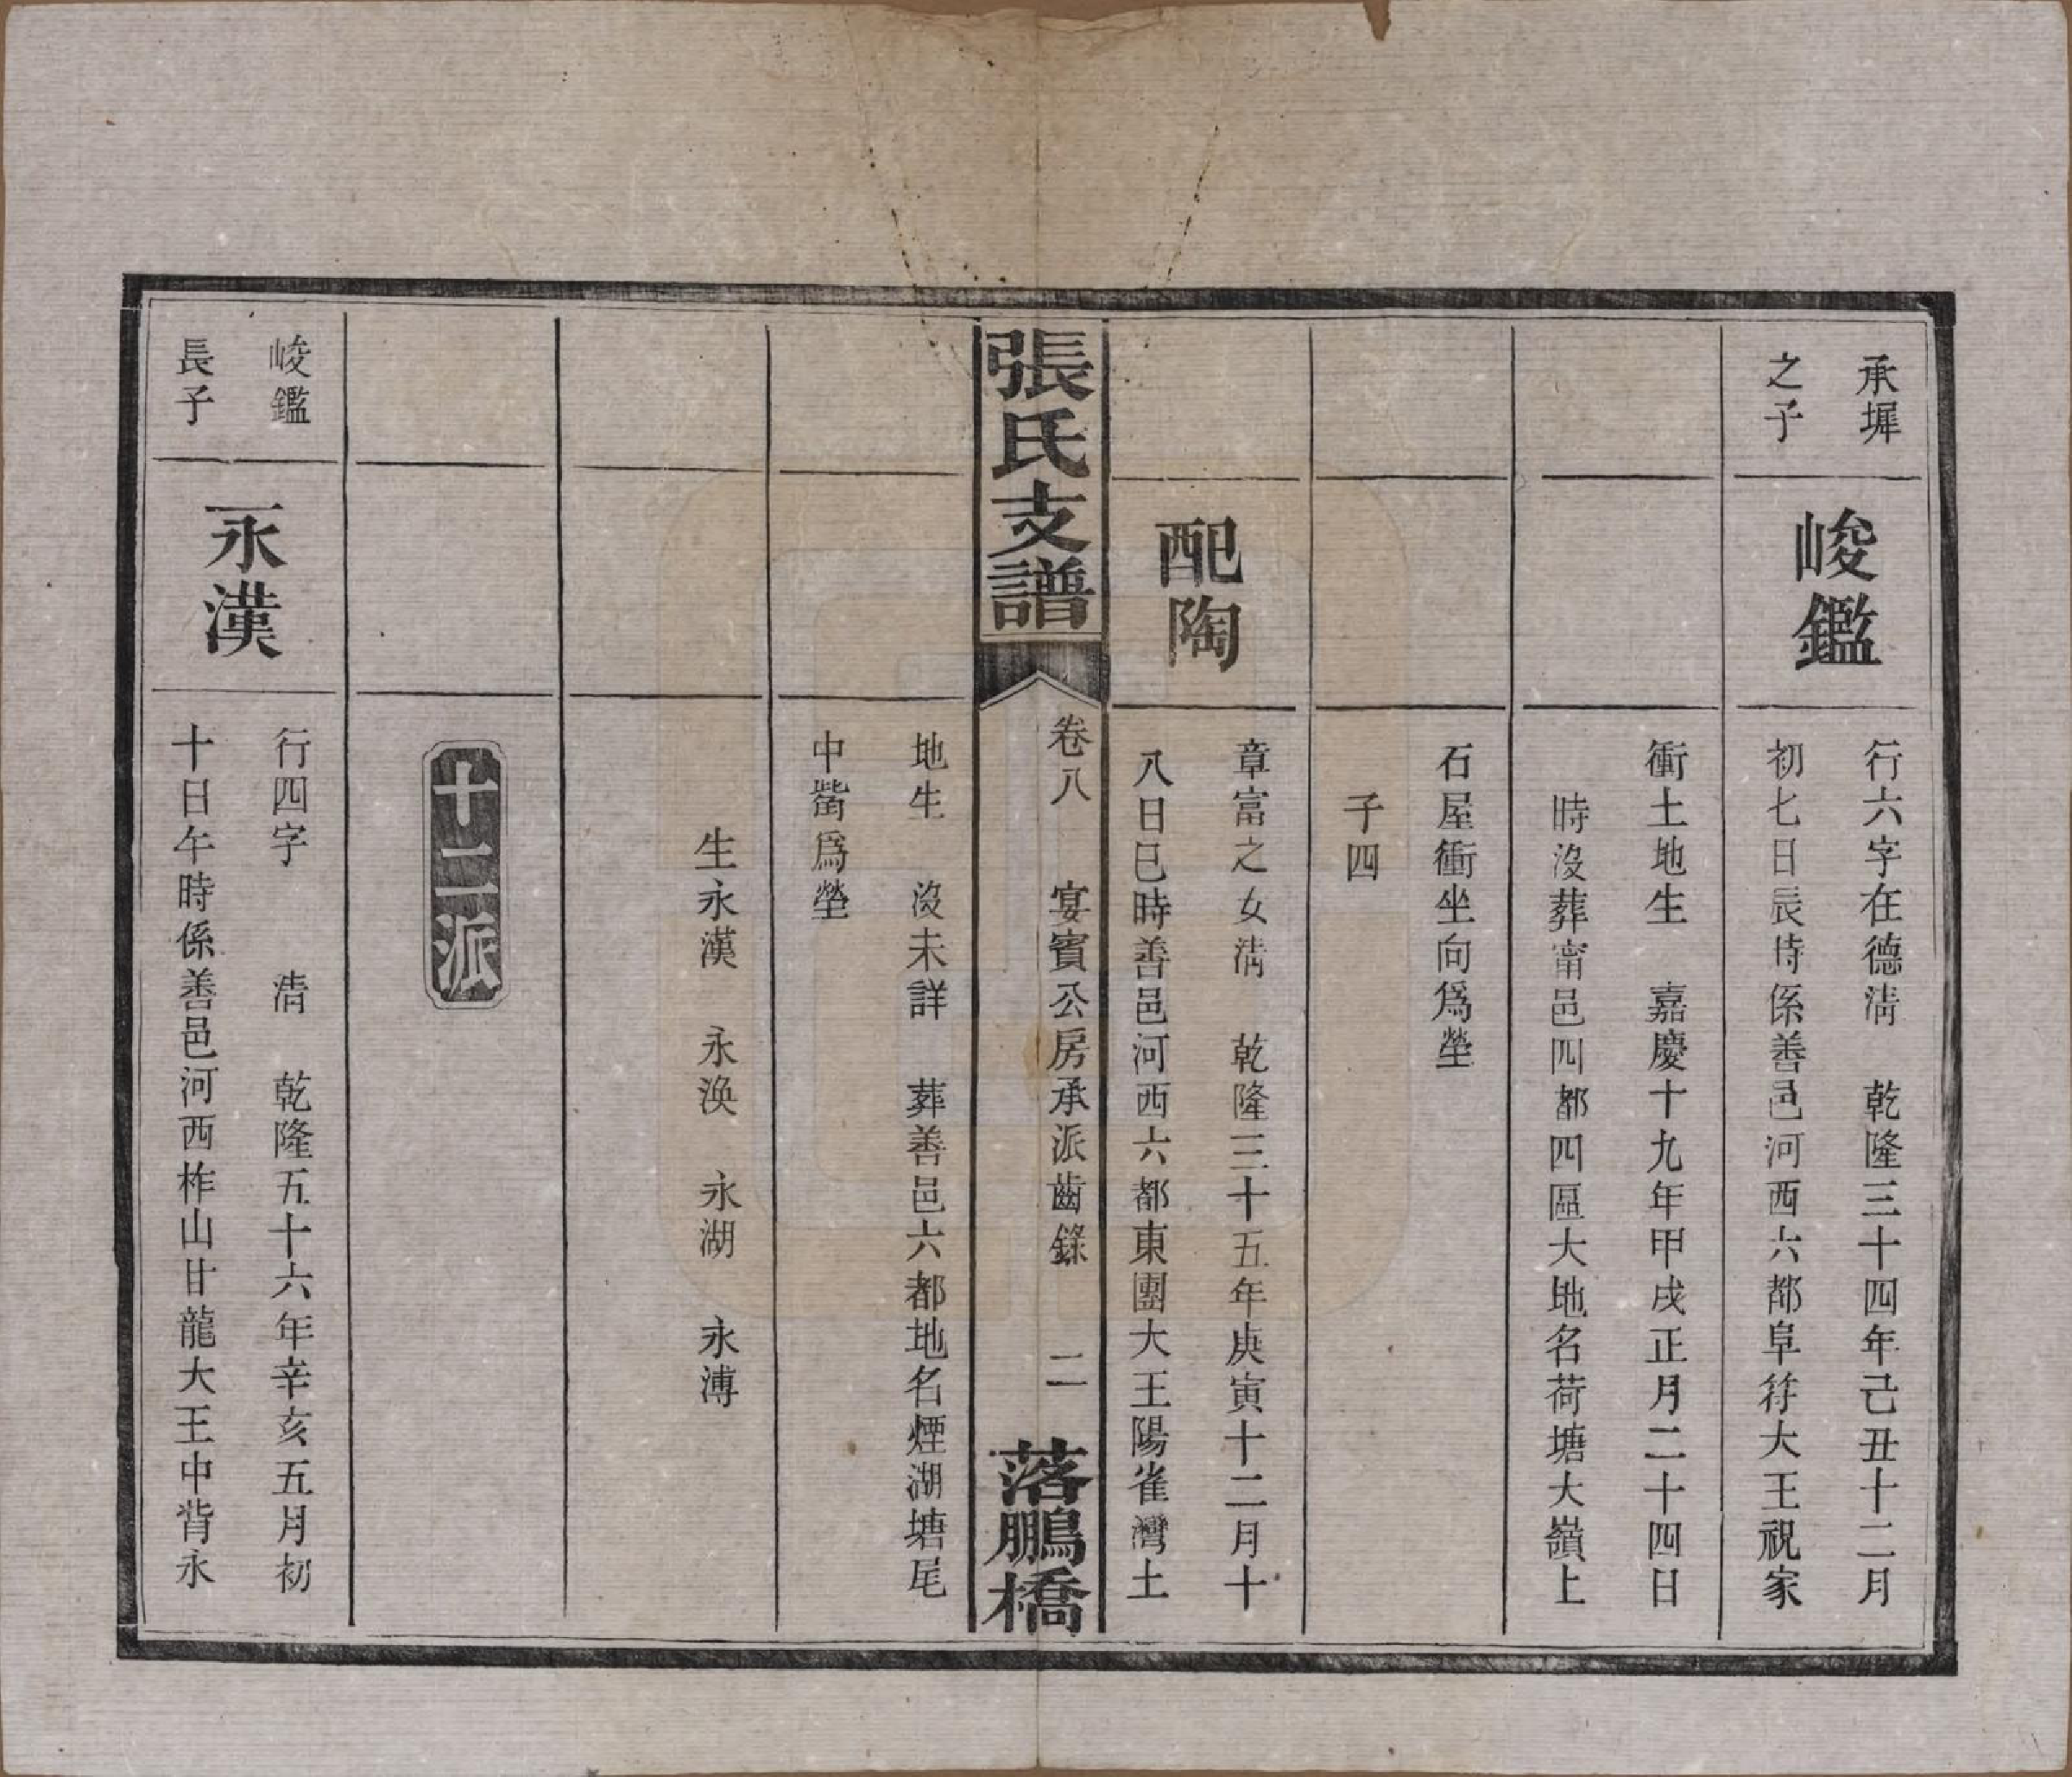 承墀
之子
峻鑑
行六字在德淸 乾隆三十四年己丑十二月
初七日辰時係善邑河西六都阜符大王祝家
衝土地生 嘉慶十九年甲戌正月二十四日
時沒葬甯邑四都四區大地名荷塘大嶺上
石屋衝坐向爲塋
子四
配陶
章富之女淸 乾隆三十五年庚寅十二月十
八日巳時善邑河西六都東團大王陽雀灣土
張氏支譜
卷八 宴賓公房承派齒錄 二
落鵬橋
地生 沒未詳 葬善邑六都地名煙湖塘尾
中嵆爲塋
生永漢 永渙 永湖 永溥
十二派
峻鑑
長子
永漢
行四字 淸 乾隆五十六年辛亥五月初
十日午時係善邑河西柞山甘龍大王中背永